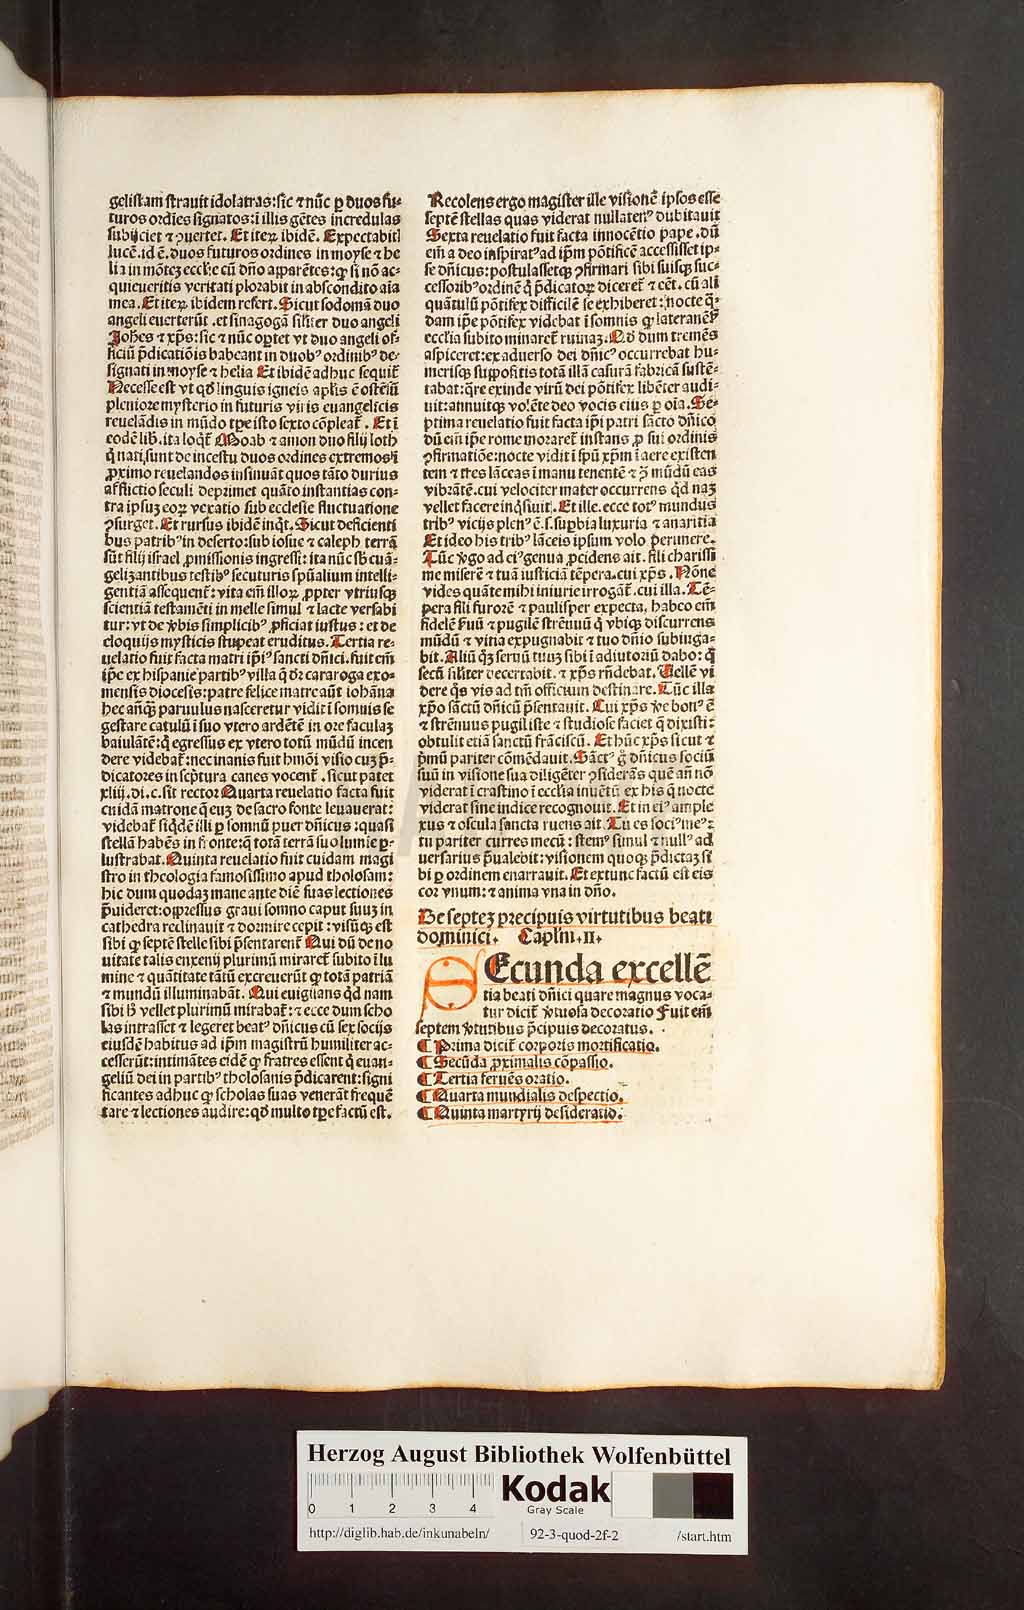 gelistam strauit idolatras: sic ⁊ nūc ꝑ duos fu-
turos ordīes signatos: ī illis gētes incredulas
subijciet ⁊ ꝯuertet. Et iteꝝ ibidē. Expectabit
lucē. id ē. duos futuros ordines in moyse ⁊ he
lia in mōteꝫ ecclīe cū dño apparētes: qꝫ si nō ac-
quieueritis veritati plorabit in abscondito aīa
mea. Et iteꝝ ibidem refert. Sicut sodomā duo
angeli euerterūt. et sinagogā silīter duo angeli
Johēs ⁊ xp̄s: sic ⁊ nūc optet vt duo angeli of-
ficiū p̄dicatiōis habeant in duobꝰ ordinibꝰ de-
signati in moyse ⁊ helia Et ibidē adhuc sequit̄
Necesse est vt qď linguis igneis aplīs ē ostēsū
pleniore mysterio in futuris viris euangelicis
reuelādis in mūdo tꝑe isto sexto cōpleat̄. Et ī
eodē lib. ita loqt̄ Moab ⁊ amon duo filij loth
q̄ nati sunt de incestu duos ordines extremos ī
ꝓximo reuelandos insinuāt quos tāto durius
afflictio seculi deprimet quāto instantias con-
tra ipsuꝫ eoꝝ vexatio sub ecclesie fluctuatione
ꝯsurget. Et rursus ibidē inq̄t. Sicut deficienti
bus patribꝰ in deserto: sub iosue ⁊ caleph terrā
sūt filij israel ꝓmissionis ingressi: ita nūc sb̄ euā-
gelizantibus testibꝰ secuturis spūalium intelli-
gentiā assequent̄: vita em̄ illoꝝ ꝓpter vtriusqꝫ
scientiā testamēti in melle simul ⁊ lacte versabi
tur: vt de v̓bis simplicibꝰ ꝓficiat iustus: et de
eloquijs mysticis stupeat eruditus. Tertia re-
uelatio fuit facta matri ip̄i' sancti dn̄ici. fuit em̄
ip̄e ex hispanie partibꝰ villa q̄ dr̄ cararoga exo-
mensis diocesis: patre felice matre aūt iohāna
hec anq̄ꝫ paruulus nasceretur vidit ī somnis se
gestare catulū ī suo vtero ardētē in ore faculaꝫ
baiulātē: q̄ egressus ex vtero totū mūdū incen
dere videbat̄: nec inanis fuit hm̄oi visio cuꝫ p̄-
dicatores in scp̄tura canes vocent̄. sicut patet
xliij. di. c. sit rector Quarta reuelatio facta fuit
cuidā matrone q̄ euꝫ de sacro fonte leuauerat:
videbat̄ siqdē illi ꝑ somnū puer dn̄icus: quasi
stellā habēs in fronte: q̄ totā terrā suo lumīe ꝑ-
lustrabat. Quinta reuelatio fuit cuidam magi
stro in theologia famosissimo apud tholosam:
hic dum quodaꝫ mane ante diē suas lectiones
p̄uideret: oppressus graui somno caput suuꝫ in
cathedra reclinauit ⁊ dormire cepit: visūqꝫ est
sibi qꝫ septē stelle sibi p̄sentarent̄ Qui dū de no
uitate talis enxenij plurimū miraret̄ subito ī lu
mine ⁊ quātitate tātū excreuerūt qꝫ totā patriā
⁊ mundū illuminabāt. Qui euigilans q̄d nam
sibi h̄ vellet plurimū mirabat̄: ⁊ ecce dum scho
las intrasset ⁊ legeret beatꝰ dn̄icus cū sex socijs
eiusdē habitus ad ip̄m magistrū humiliter ac-
cesserūt: intimātes eidē qꝫ fratres essent q̄ euan-
geliū dei in partibꝰ tholosanis p̄dicarent: signi
ficantes adhuc qꝫ scholas suas venerāt frequē
tare ⁊ lectiones audire: qď multo tꝑe factū est.
Recolens ergo magister ille visionē ipsos esse
septē stellas quas viderat nullatenꝰ dubitauit
Sexta reuelatio fuit facta innocētio pape. dū
em̄ a deo inspiratꝰ ad ip̄m pōtificē accessisset ip-
se dn̄icus: postulassetqꝫ ꝯfirmari sibi suisqꝫ suc-
cessoribꝰ ordinē q̄ p̄dicatoꝝ diceret̄ ⁊ eēt. cū ali
quātulū pōtifex difficilē se exhiberet: nocte q̄-
dam ip̄e pōtifex videbat ī somnis qꝫ lateranēs̄
ecclīa subito minaret̄ ruinaꝫ. Qď dum tremēs
aspiceret: ex aduerso dei dn̄icꝰ occurrebat hu-
merisqꝫ suppositis totā illā casurā fabricā sustē-
tabat: q̄re exinde virū dei pōtifex libēter audi-
uit: annuitqꝫ volēte deo vocis eius ꝑ oīa. Se-
ptima reuelatio fuit facta ip̄i patri sācto dn̄ico
dū em̄ ip̄e rome moraret̄ instans ꝓ sui ordinis
ꝯfirmatiōe: nocte vidit ī spū xp̄m ī aere existen
tem ⁊ tres lāceas ī manu tenentē ⁊ ꝯ mūdū eas
vibrātē. cui velociter mater occurrens q̄d naꝫ
vellet facere inq̄siuit. Et ille. ecce totꝰ mundus
tribꝰ vicijs plenꝰ ē. s. suꝑbia luxuria ⁊ auaritia
Et ideo his tribꝰ lāceis ipsum volo perimere.
Tūc v̓go ad eiꝰ genua ꝓcidens ait. fili charissi
me miserē ⁊ tuā iusticiā tēpera. cui xp̄s. Nōne
vides quāte mihi iniurie irrogāt̄. cui illa. Tē-
pera fili furorē ⁊ paulisper expecta, habeo em̄
fidelē s̄uū ⁊ pugilē strēnuū q̄ vbiqꝫ discurrens
mūdū ⁊ vitia expugnabit ⁊ tuo dn̄io subiuga-
bit. Aliū q̄ꝫ seruū tuuꝫ sibi ī adiutoriū dabo: q̄
secū silīter decertabit. ⁊ xp̄s rn̄debat. Uellē vi
dere q̄s vis ad tm̄ officium destinare. Tūc illa
xp̄o sāctū dn̄icū p̄sentauit. Cui xp̄s v̓e bonꝰ ē
⁊ strēnuus pugil iste ⁊ studiose faciet q̄ dixisti:
obtulit etiā sanctū frāciscū. Et hūc xp̄s sicut ⁊
p̄mū pariter cōmēdauit. Sāctꝰ g̊ dn̄icus sociū
suū in visione sua diligēter ꝯsiderās quē an̄ nō
viderat ī crastino ī ecclīa inuētū ex his q̄ nocte
viderat sine indice recognouit. Et in eiꝰ ample
xus ⁊ oscula sancta ruens ait. Tu es sociꝰ meꝰ:
tu pariter curres mecū: stemꝰ simul ⁊ nullꝰ ad
uersarius p̄ualebit: visionem quoqꝫ p̄dictaꝫ si
bi ꝑ ordinem enarrauit. Et extunc factū est eis
cor vnum: ⁊ anima vna in dño.
De septeꝫ precipuis virtutibus beati
dominici. Caplīm. II.
SEcunda excellē
tia beati dn̄ici quare magnus voca-
tur dicit̄ v̓tuosa decoratio Fuit em̄
septem v̓tutibus p̄cipuis decoratus.
¶ Prima dicit̄ corporis mortificatio.
¶ Secūda ꝓximalis cōpassio.
¶ Tertia feruēs oratio.
¶ Quarta mundialis despectio.
¶ Quinta martyrij desideratio.
Herzog August Bibliothek Wolfenbüttel
0 1 2 3 4
Kodak
Gray Scale
http://diglib.hab.de/inkunabeln/ 92-3-quod-2f-2 /start.htm